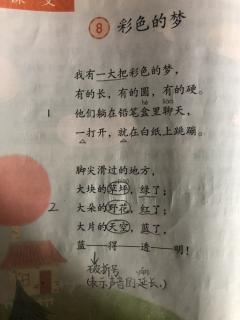 课文
8 彩色的梦
我有一大把彩色的梦,
有的长,有的圆,有的硬。
hé liáo
1 他们躺在铅笔盒里聊天,
一打开,就在白纸上跳蹦。
脚尖滑过的地方,
大块的草坪,绿了;
2 大朵的野花,红了;
大片的天空,蓝了,
蓝——得——透——明!
破折号
(表示声音的延长。)